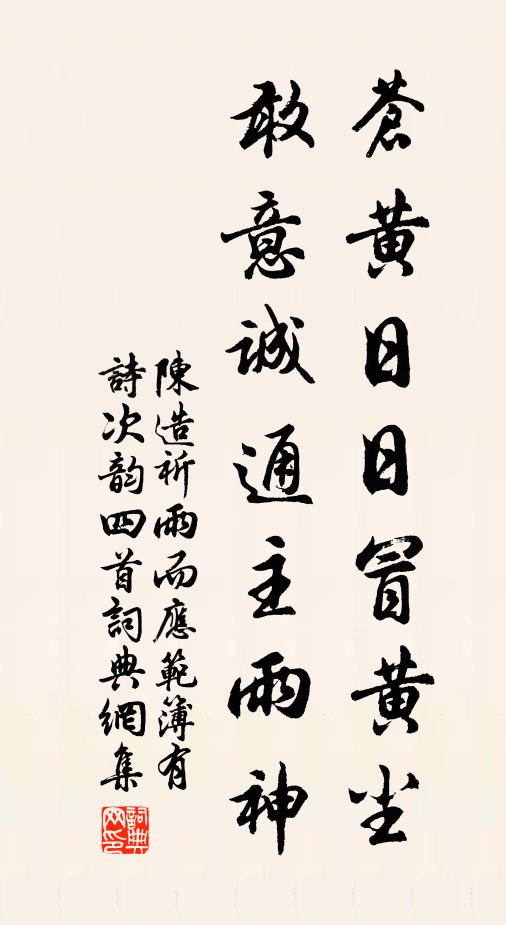 蒼黃日日冒黃尘
敢意誠通主雨神
陳造祈雨而應範簿有
詩次韵四首詞典網集
詞典網印